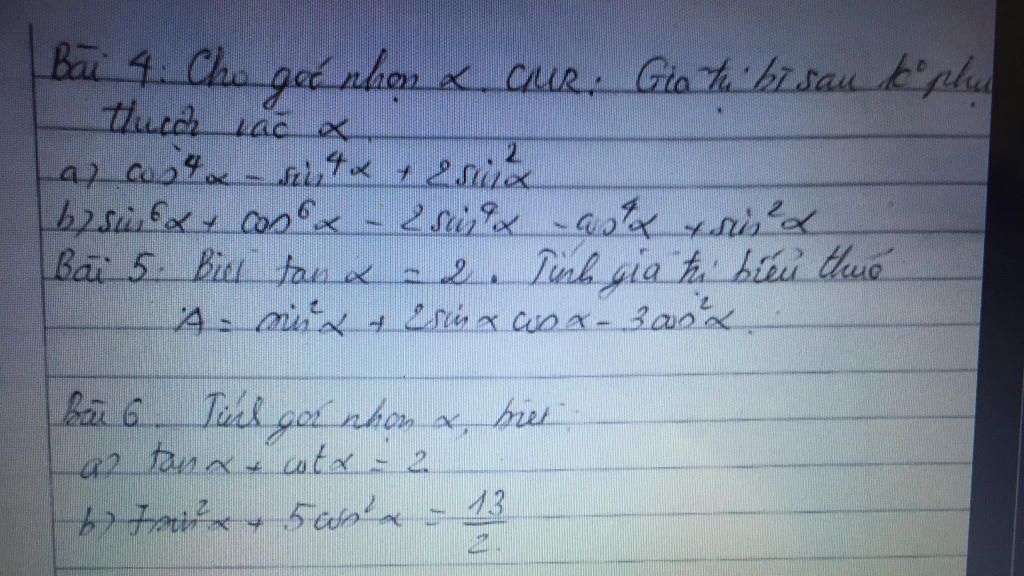 Bài 4: Cho góc nhọn α. CMR: Giá trị bt sau k° phụ
thuộc vào α.
a) cos⁴α - sin⁴α + 2sin²α
b) sin⁶α + cos⁶α - 2sin⁴α - cos⁴α + sin²α
Bài 5. Biết tan α = 2. Tính giá trị biểu thức
A = sin²α + 2sinα cosα - 3cos²α.
Bài 6. Tính góc nhọn α, biết:
a) tanα + cotα = 2
b) 7sin²α + 5cos²α = 13/2.